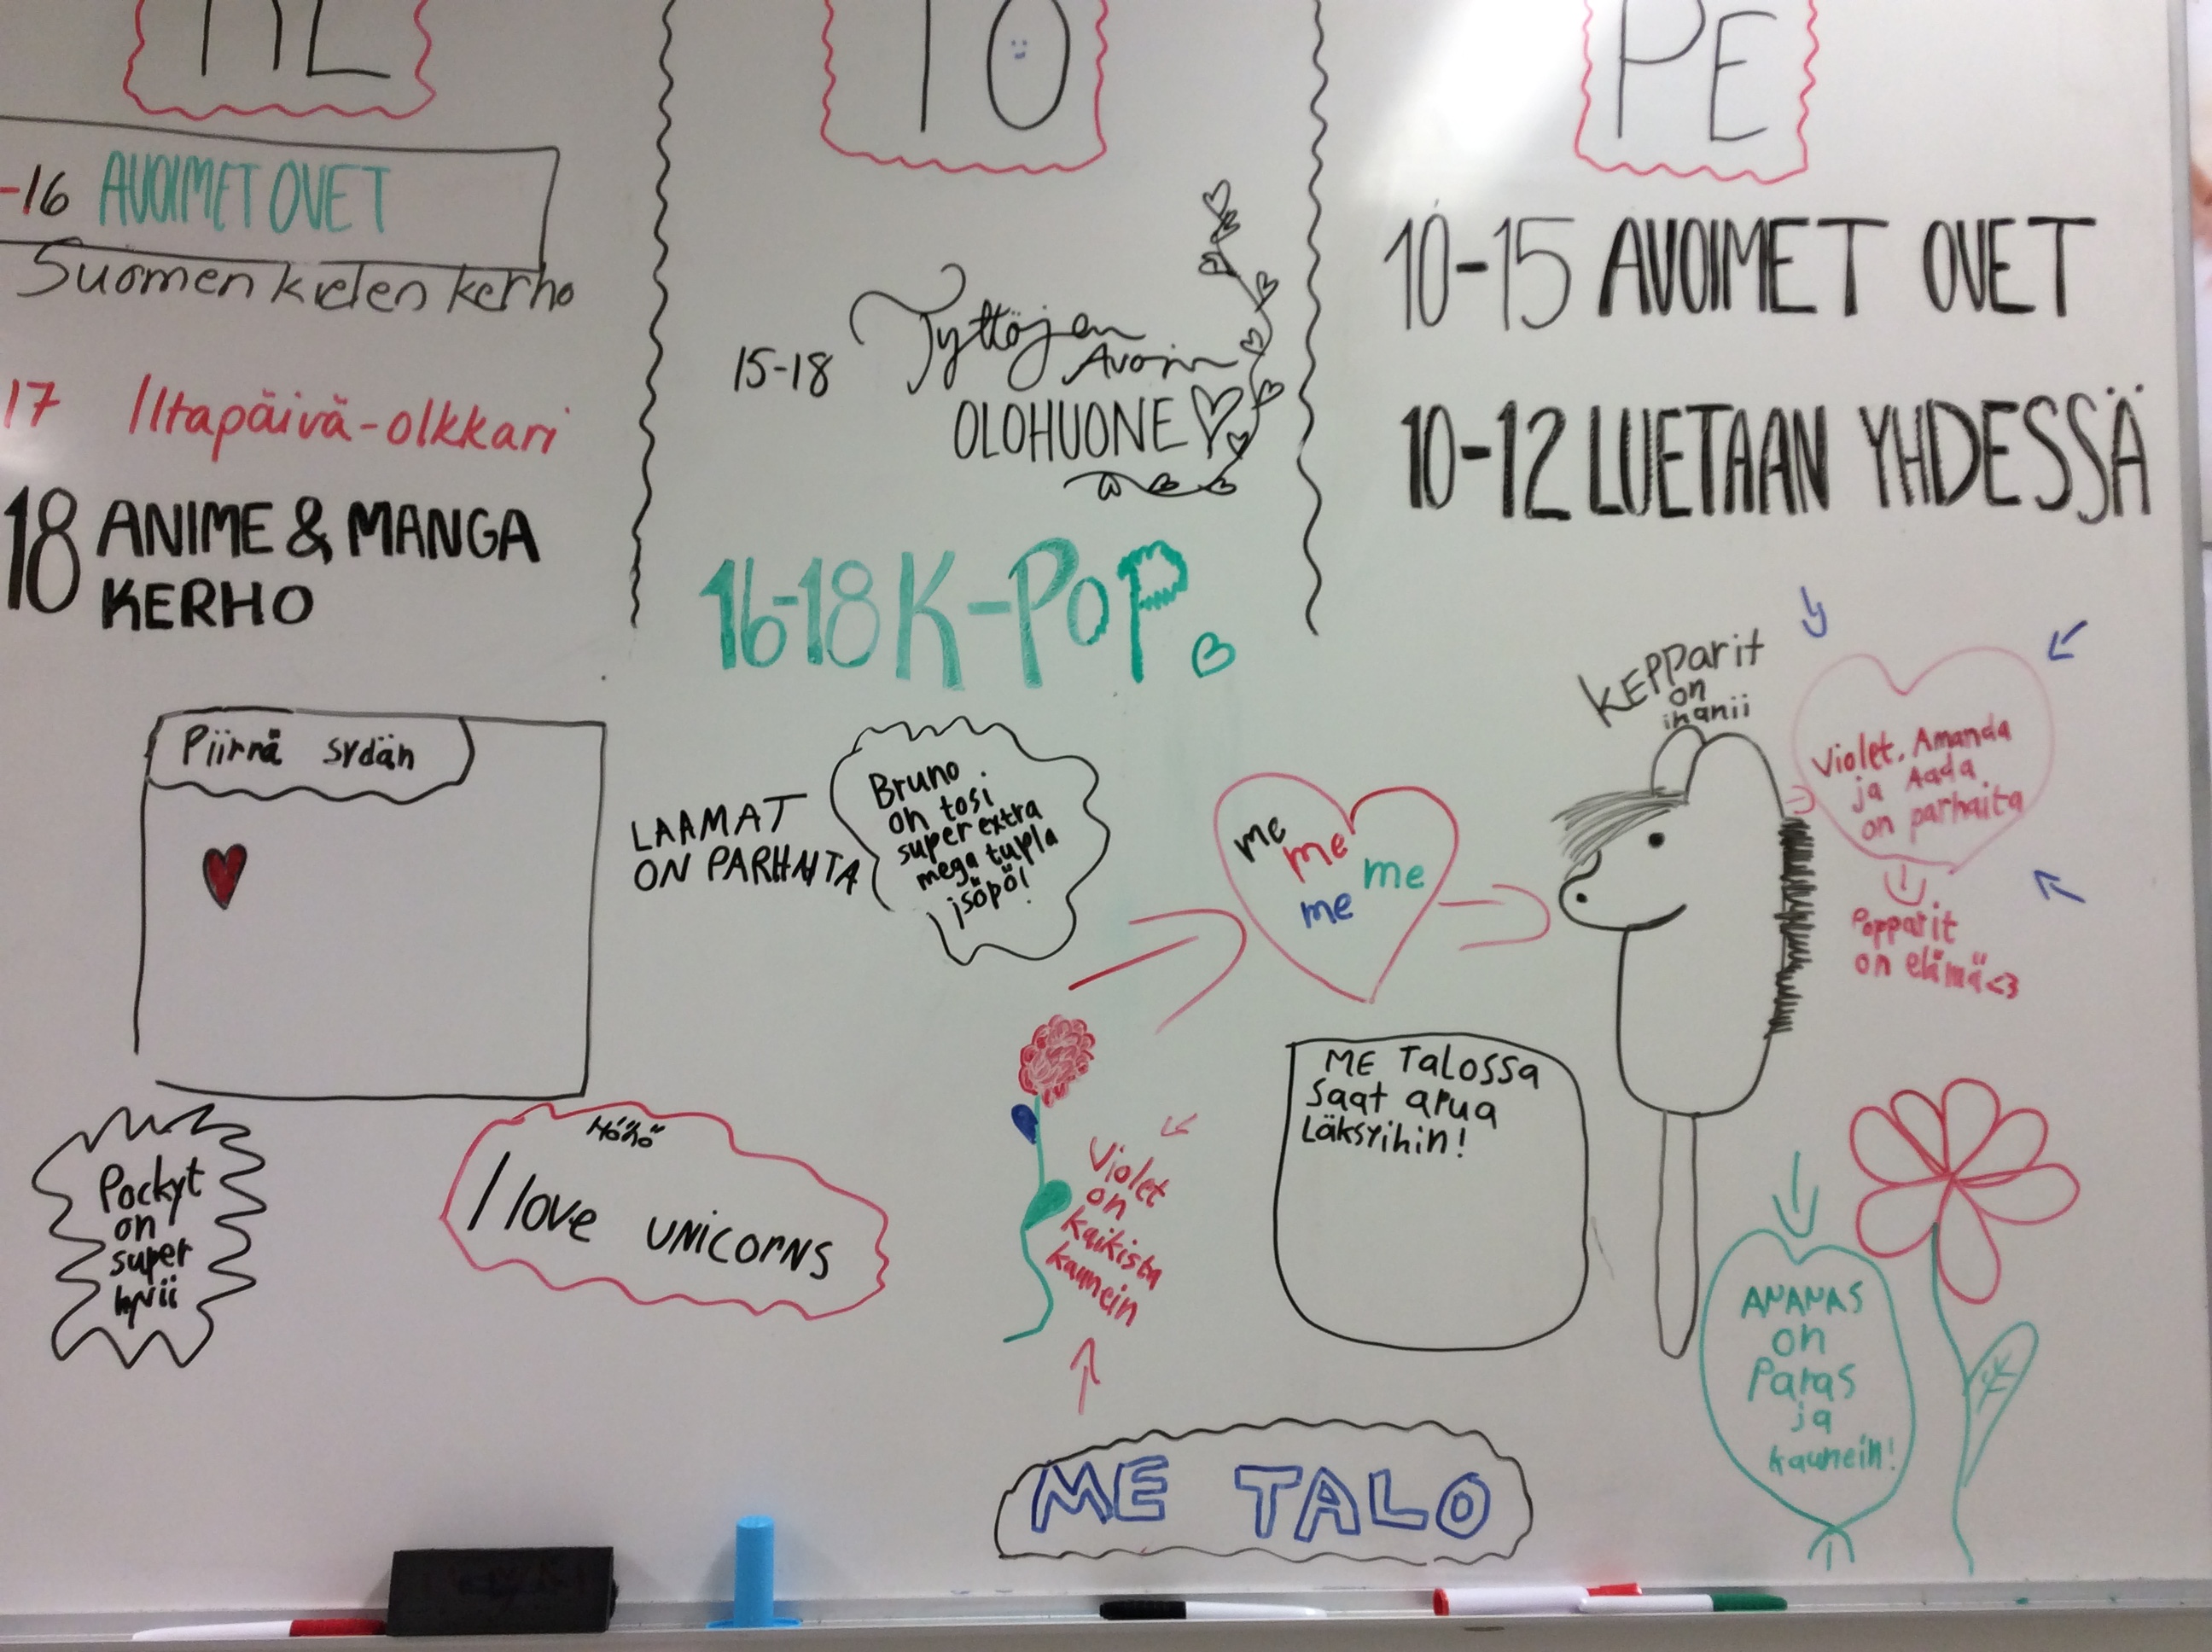 TO
PE
-16 AVOIMET OVET
Suomen kielen kerho
17 Iltapäivä-olkkari
18 ANIME & MANGA
KERHO
15-18 Tyttöjen
Avoin
OLOHUONE
16-18 K-POP
10-15 AVOIMET OVET
10-12 LUETAAN YHDESSÄ
Piirrä sydän
LAAMAT
ON PARHAITA
Bruno
on tosi
super extra
mega tupla
jsöpö!
me
me
me
me
KEPParit
on
ihanii
Violet, Amanda
ja Aada
on parhaita
Popparit
on elämä<3
Pockyt
on
super
hyvii
Höhö
I love UNICORNS
Violet
on
kaikista
kaunein
ME TALOSSA
Saat apua
Läksyihin!
ANANAS
on
Paras
ja
kaunein!
ME TALO